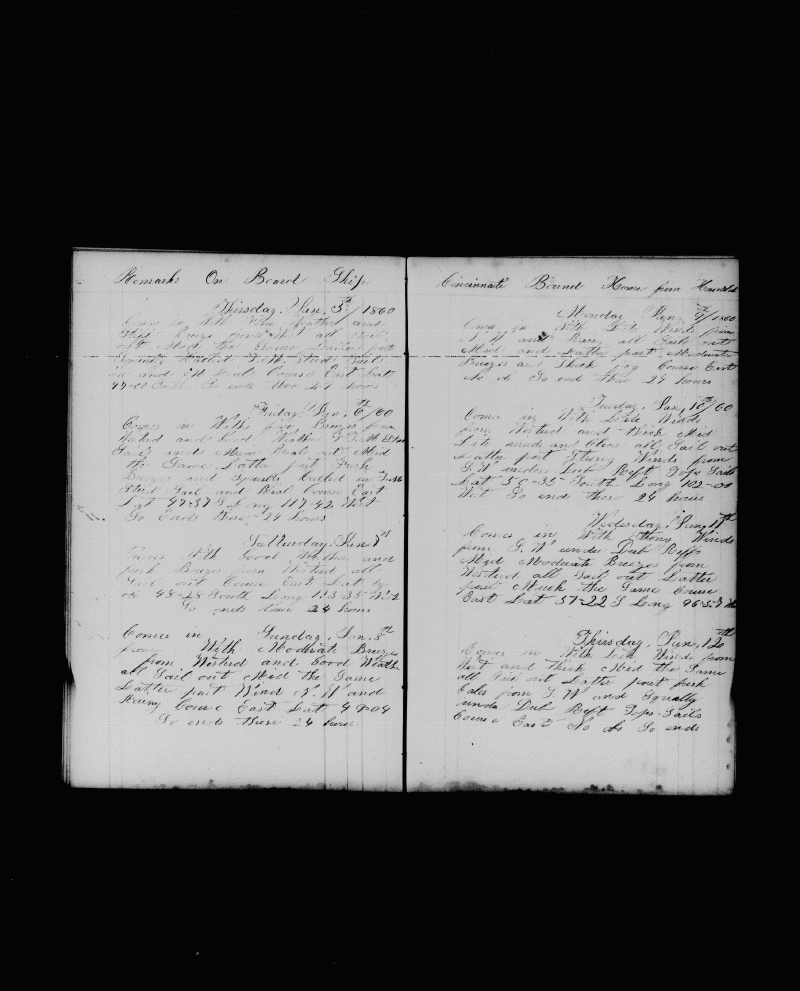 Remarks On Board Ship
Thirsday, Jan, 5th/1860
Comes in With Weather and
from the all Sail
out Mid the Same Latter part
Squaly Hailed
in and Course East Lat
47-00 So ends 24 hours
Friday, Jan, 6th/60
Comes in With fine Breezes from
Westerd and Good Weather
Sail and Main out Mid
the Same Latter part Fresh
Breezes and Squals Halled in
Stud Sail and Rial Course East
Lat 47-57 S Long 117-42 West
So Ends these 24 hours
Satturday, Jan 7th
Comes With Good Weather and
fresh Breezes from Westerd all
Sail out Course East Lat by
ob 48-28 South Long 113-35 West
So ends these 24 hours
Comes in Sunday, Jan, 8th
from With Moderate Breezes
from Westerd and Good Weather
all Sail out Mid the Same
Latter part Wind N.W and
Course East Lat 49-04
So ends these 24 hours
Cincinnati Bound Home from
Monday Jan, 9th/1860
Comes in With Lite Winds from
N.W and Rainy all Sails out
Mid and Latter part Moderate
Breezes and Thick fog Course East
No ob So ends these 24 hours
Tuesday, Jan, 10th/60
Comes in With Lite Winds
from Westerd and thick Mid
Lite winds and Clear all Sail out
Latter part Strong Winds from
S.W under Dub Reft Tops Sails
Lat 50-35 South Long 102-00
West So ends these 24 hours
Wedesday, Jan, 11th
Comes in With Strong Winds
from S.W under Dub Refs
Mid Moderate Breezes from
Westerd all Sail out Latter
part Much the Same Course
East Lat 51-22 S Long 96-57
Thirsday, Jan, 12th
Comes in With Lite Winds from
West and thick Mid the Same
all Sail out Latter part fresh
Gales from S.W and Squally
under Dub Reft Tops-Sails
Course East No ob So ends